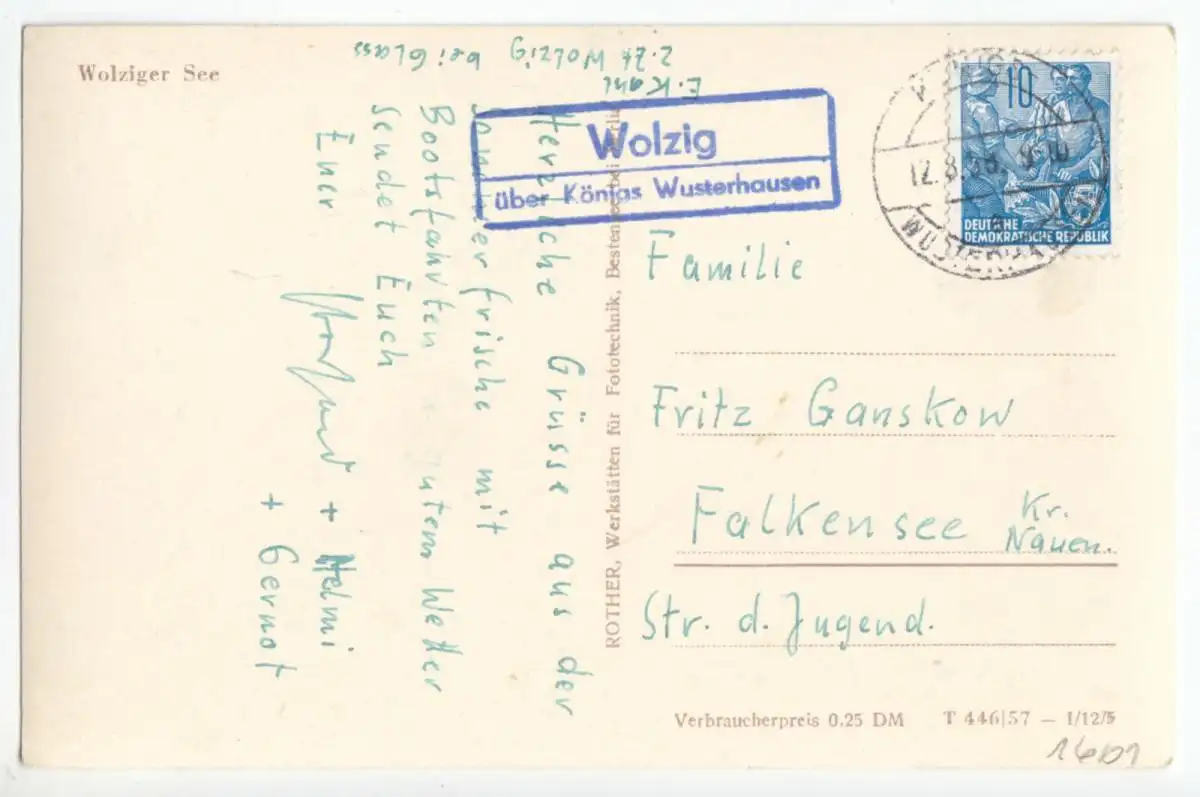 Wolziger See
E. Kahl
z. Zt. Wolzig bei Glass
Herzliche Grüsse aus der
Sommerfrische mit
Bootsfahrten gutem Wetter
sendet Euch
Euer
+ Helmi
+ Gernot
Wolzig
über Königs Wusterhausen
10
DEUTSCHE
DEMOKRATISCHE REPUBLIK
12.8.58
WUSTERHAU
ROTHER, Werkstätten für Fototechnik, Bestensee bei Berlin
Familie
Fritz Ganskow
Falkensee Kr. Nauen.
Str. d. Jugend.
Verbraucherpreis 0.25 DM T 446|57 — 1/12/5
1601